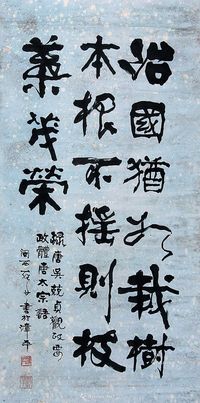 治國猶如栽樹
本根不搖則枝
葉茂榮
錄唐吳兢貞觀政要
政體唐太宗語
書於漳平